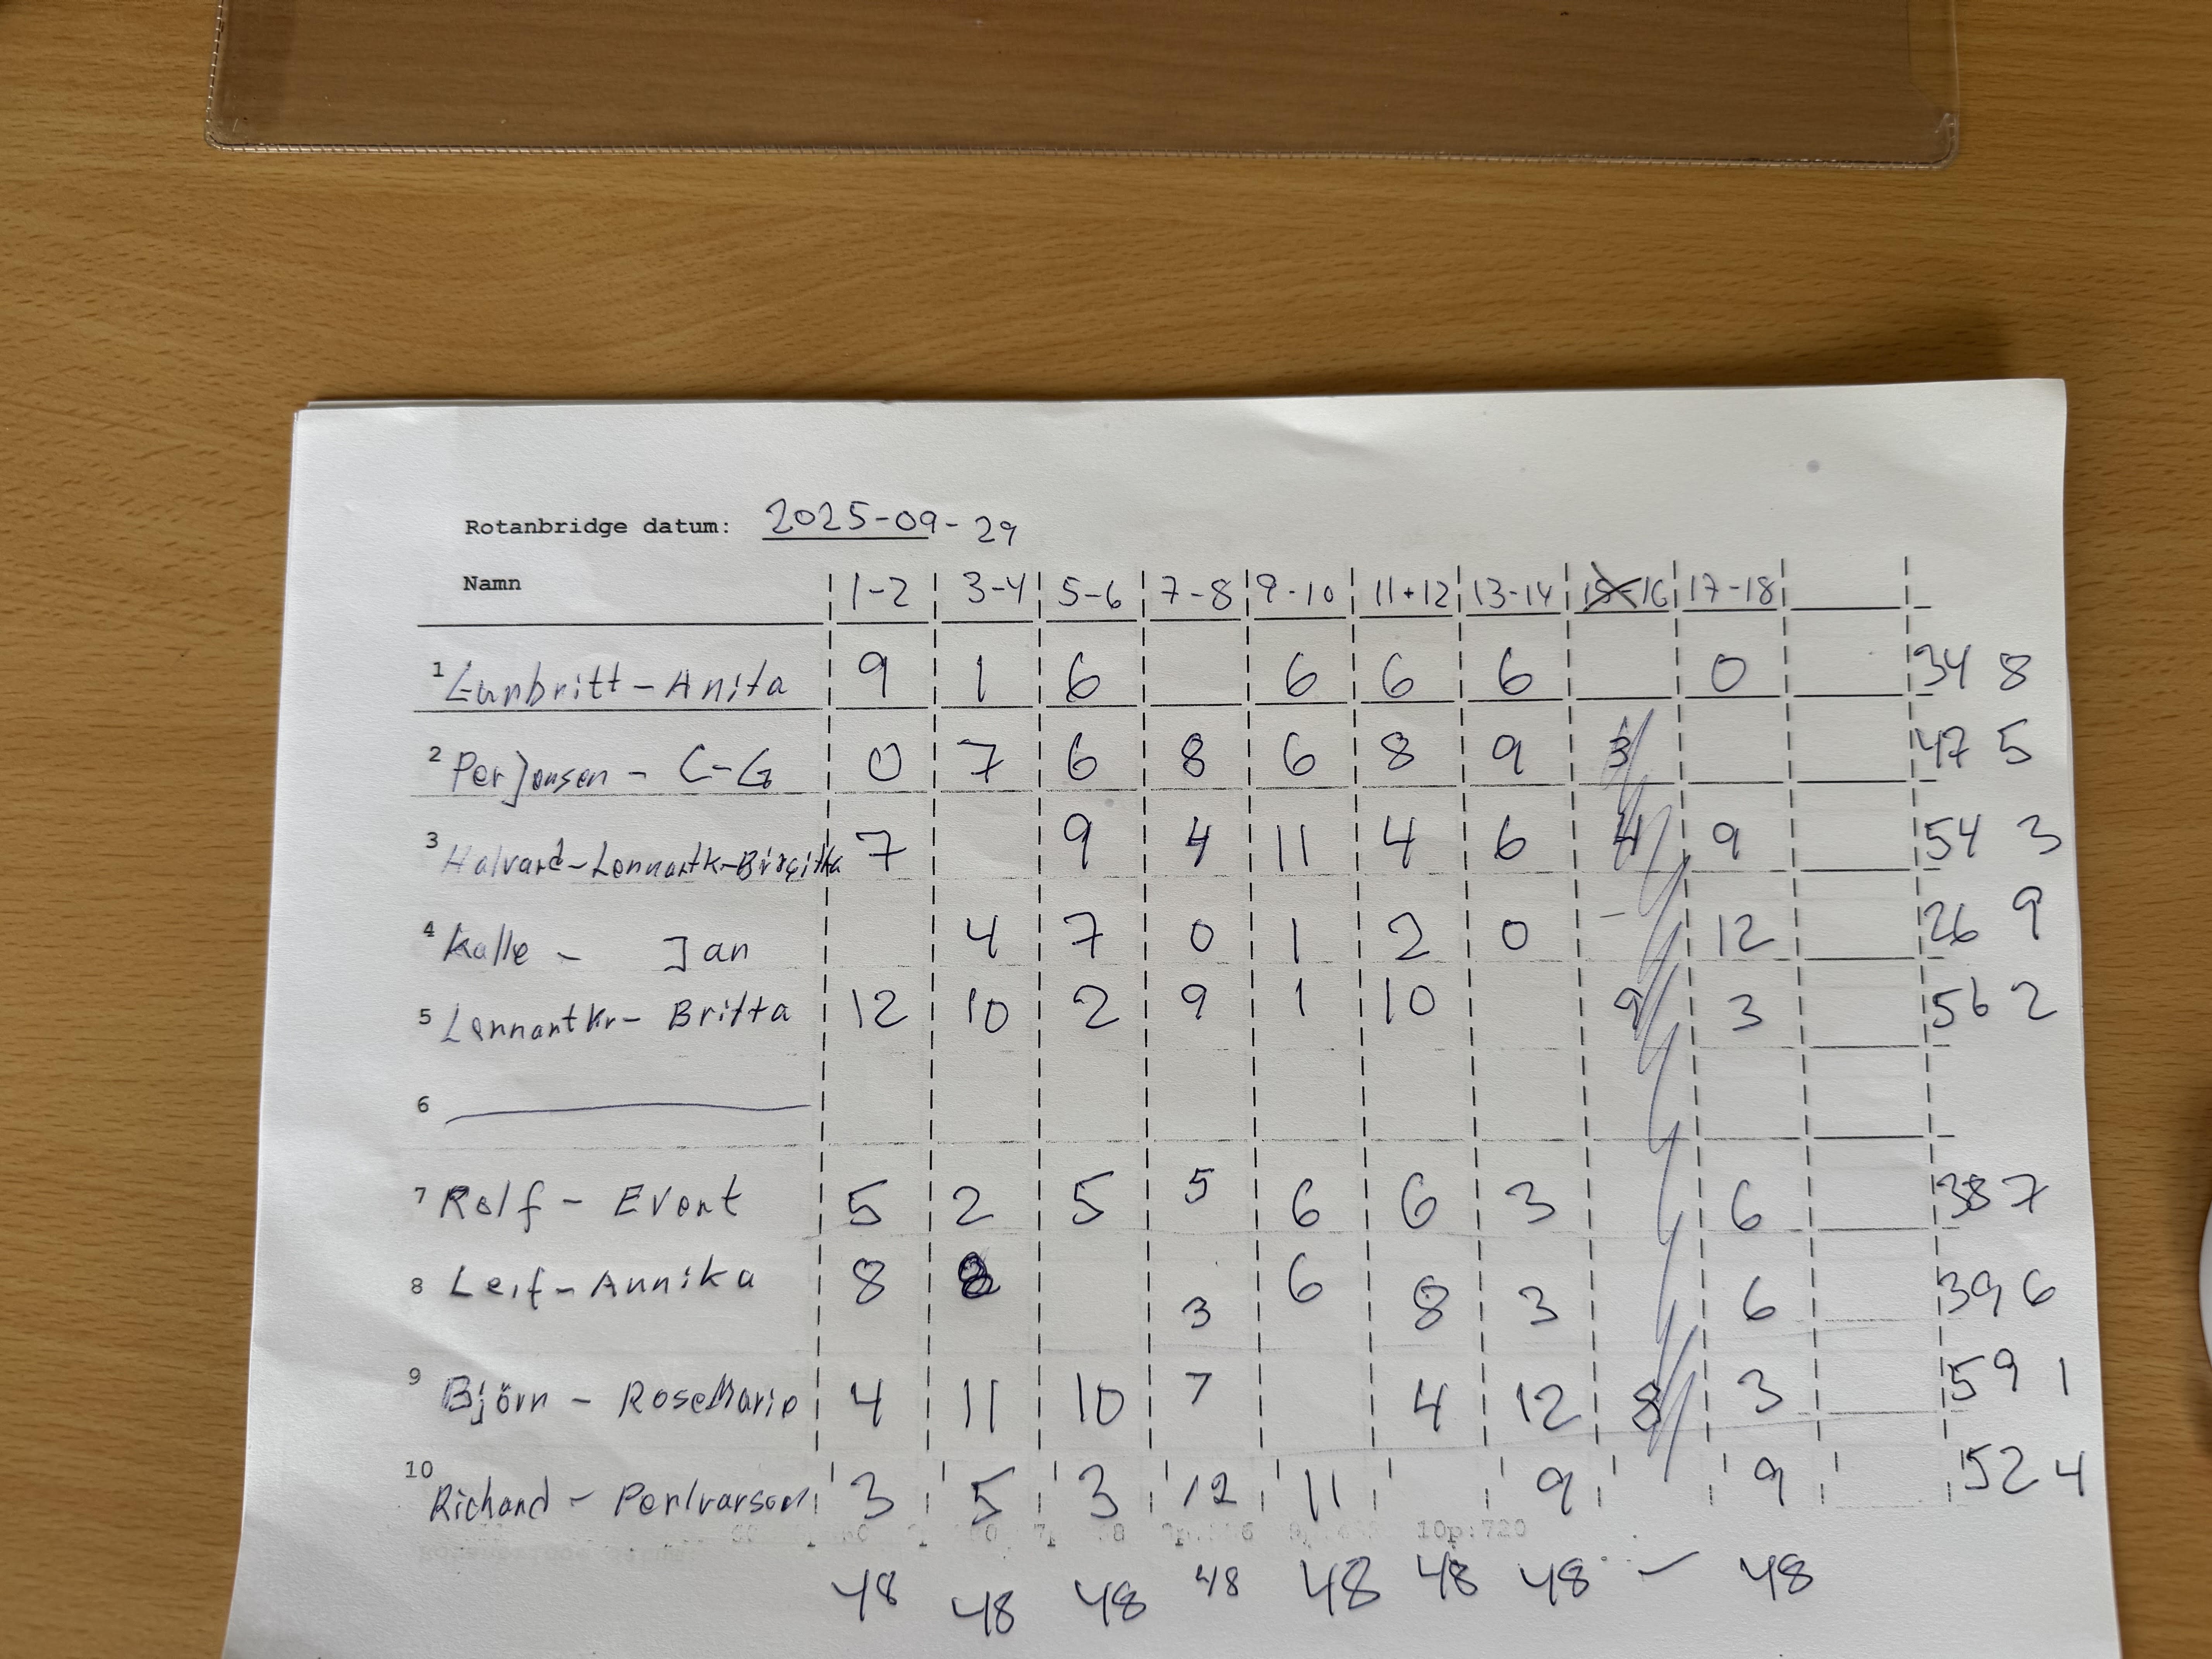 Rotanbridge datum: 2025-09-29
Namn 1-2 3-4 5-6 7-8 9-10 11+12 13-14 15-16 17-18
1 Gunbritt - Anita 9 1 6 6 6 6 0 34 8
2 Per Jonsen - C-G 0 7 6 8 6 8 9 3 47 5
3 Halvard-Lennartk-Birgitta 7 9 4 11 4 6 4 9 54 3
4 Kalle - Jan 4 7 0 1 2 0 - 12 26 9
5 Lennart Kr - Britta 12 10 2 9 1 10 9 3 56 2
6
7 Rolf - Evert 5 2 5 5 6 6 3 6 38 7
8 Leif - Annika 8 8 3 6 8 3 6 39 6
9 Björn - RoseMarie 4 11 10 7 4 12 8 3 59 1
10 Richard - PerIvarsson 3 5 3 12 11 9 9 52 4
10p:720
48 48 48 48 48 48 48 - 48